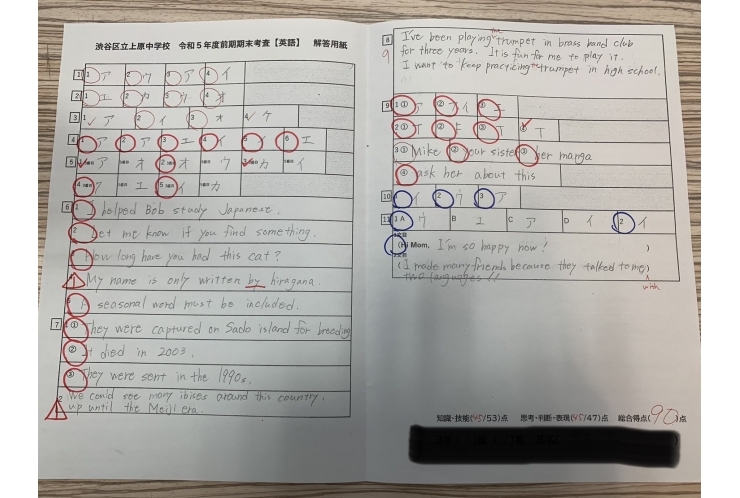 渋谷区立上原中学校 令和5年度前期期末考査【英語】 解答用紙
1 1 ア 2 ウ 3 ア 4 イ
2 1 エ 2 カ 3 ウ 4 オ
3 1 ア 2 イ 3 オ 4 ケ
4 1 ア 2 ア 3 エ 4 イ 5 イ 6 エ
5 ア オ 2 オ ウ カ イ
4 ア エ 5 イ カ
6 1 I helped Bob study Japanese.
2 Let me know if you find something.
How long have you had this cat?
My name is only written by hiragana.
A seasonal word must be included.
7 1 ① They were captured on Sado island for breeding
② It died in 2003.
③ They were sent in the 1990s.
2 We could see many ibises around this country
up until the Meiji era.
8 I've been playing the trumpet in brass band club
9 for three years. It is fun for me to play it.
I want to keep practicing the trumpet in high school.
9 1 ① ア ② イ ③ エ
2 ① ② ③ ④
3 ① Mike ② your sister ③ her manga
④ ask her about this
10 1 イ 2 ウ 3 ア
11 1 A ウ B エ C ア D イ 2 イ
(Hi Mom, I'm so happy now! )
(I made many friends because they talked to me)
with
two languages!!
知識・技能(45/53)点 思考・判断・表現(45/47)点 総合得点(90)点